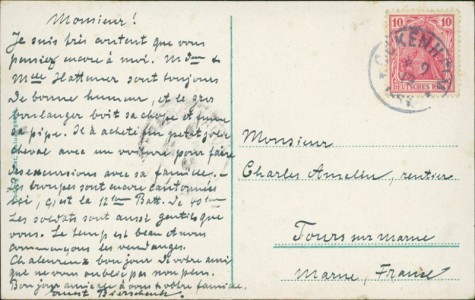 Monsieur!
Je suis très content que vous
pensiez encore à moi. Mdme &
Melle Hattemer sont toujours
de bonne humeur, et le gros
boulanger boit sa chope et fume
sa pipe. Il a acheté un petit joli
cheval avec une voiture pour faire
des excursions avec sa famille.
Les troupes sont encore cantonnées
ici, c'est la 12te Batt. de
Les soldats sont aussi gentils que
vous. Le temps est beau et nous
commençons les vendanges.
Chaleureux bonjour de votre ami
que ne vous oublie pas non plus.
Bonjour amicale à vous & votre famille.
Ernest
Monsieur
Charles Amelin, rentier
Tours sur marne
Marne, France
10 10
DEUTSCHES REICH